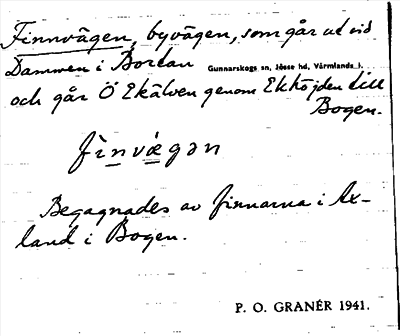 Finnvägen, byvägen, som går ut vid
Dammen i Bortan Gunnarskogs sn, Jösse hd, Värmlands l.
och går Ö Ekälven genom Ekhöjden till
Bogen.
fìnvǽgən
Begagnades av finnarna i Åx-
land i Bogen.
P. O. GRANÉR 1941.